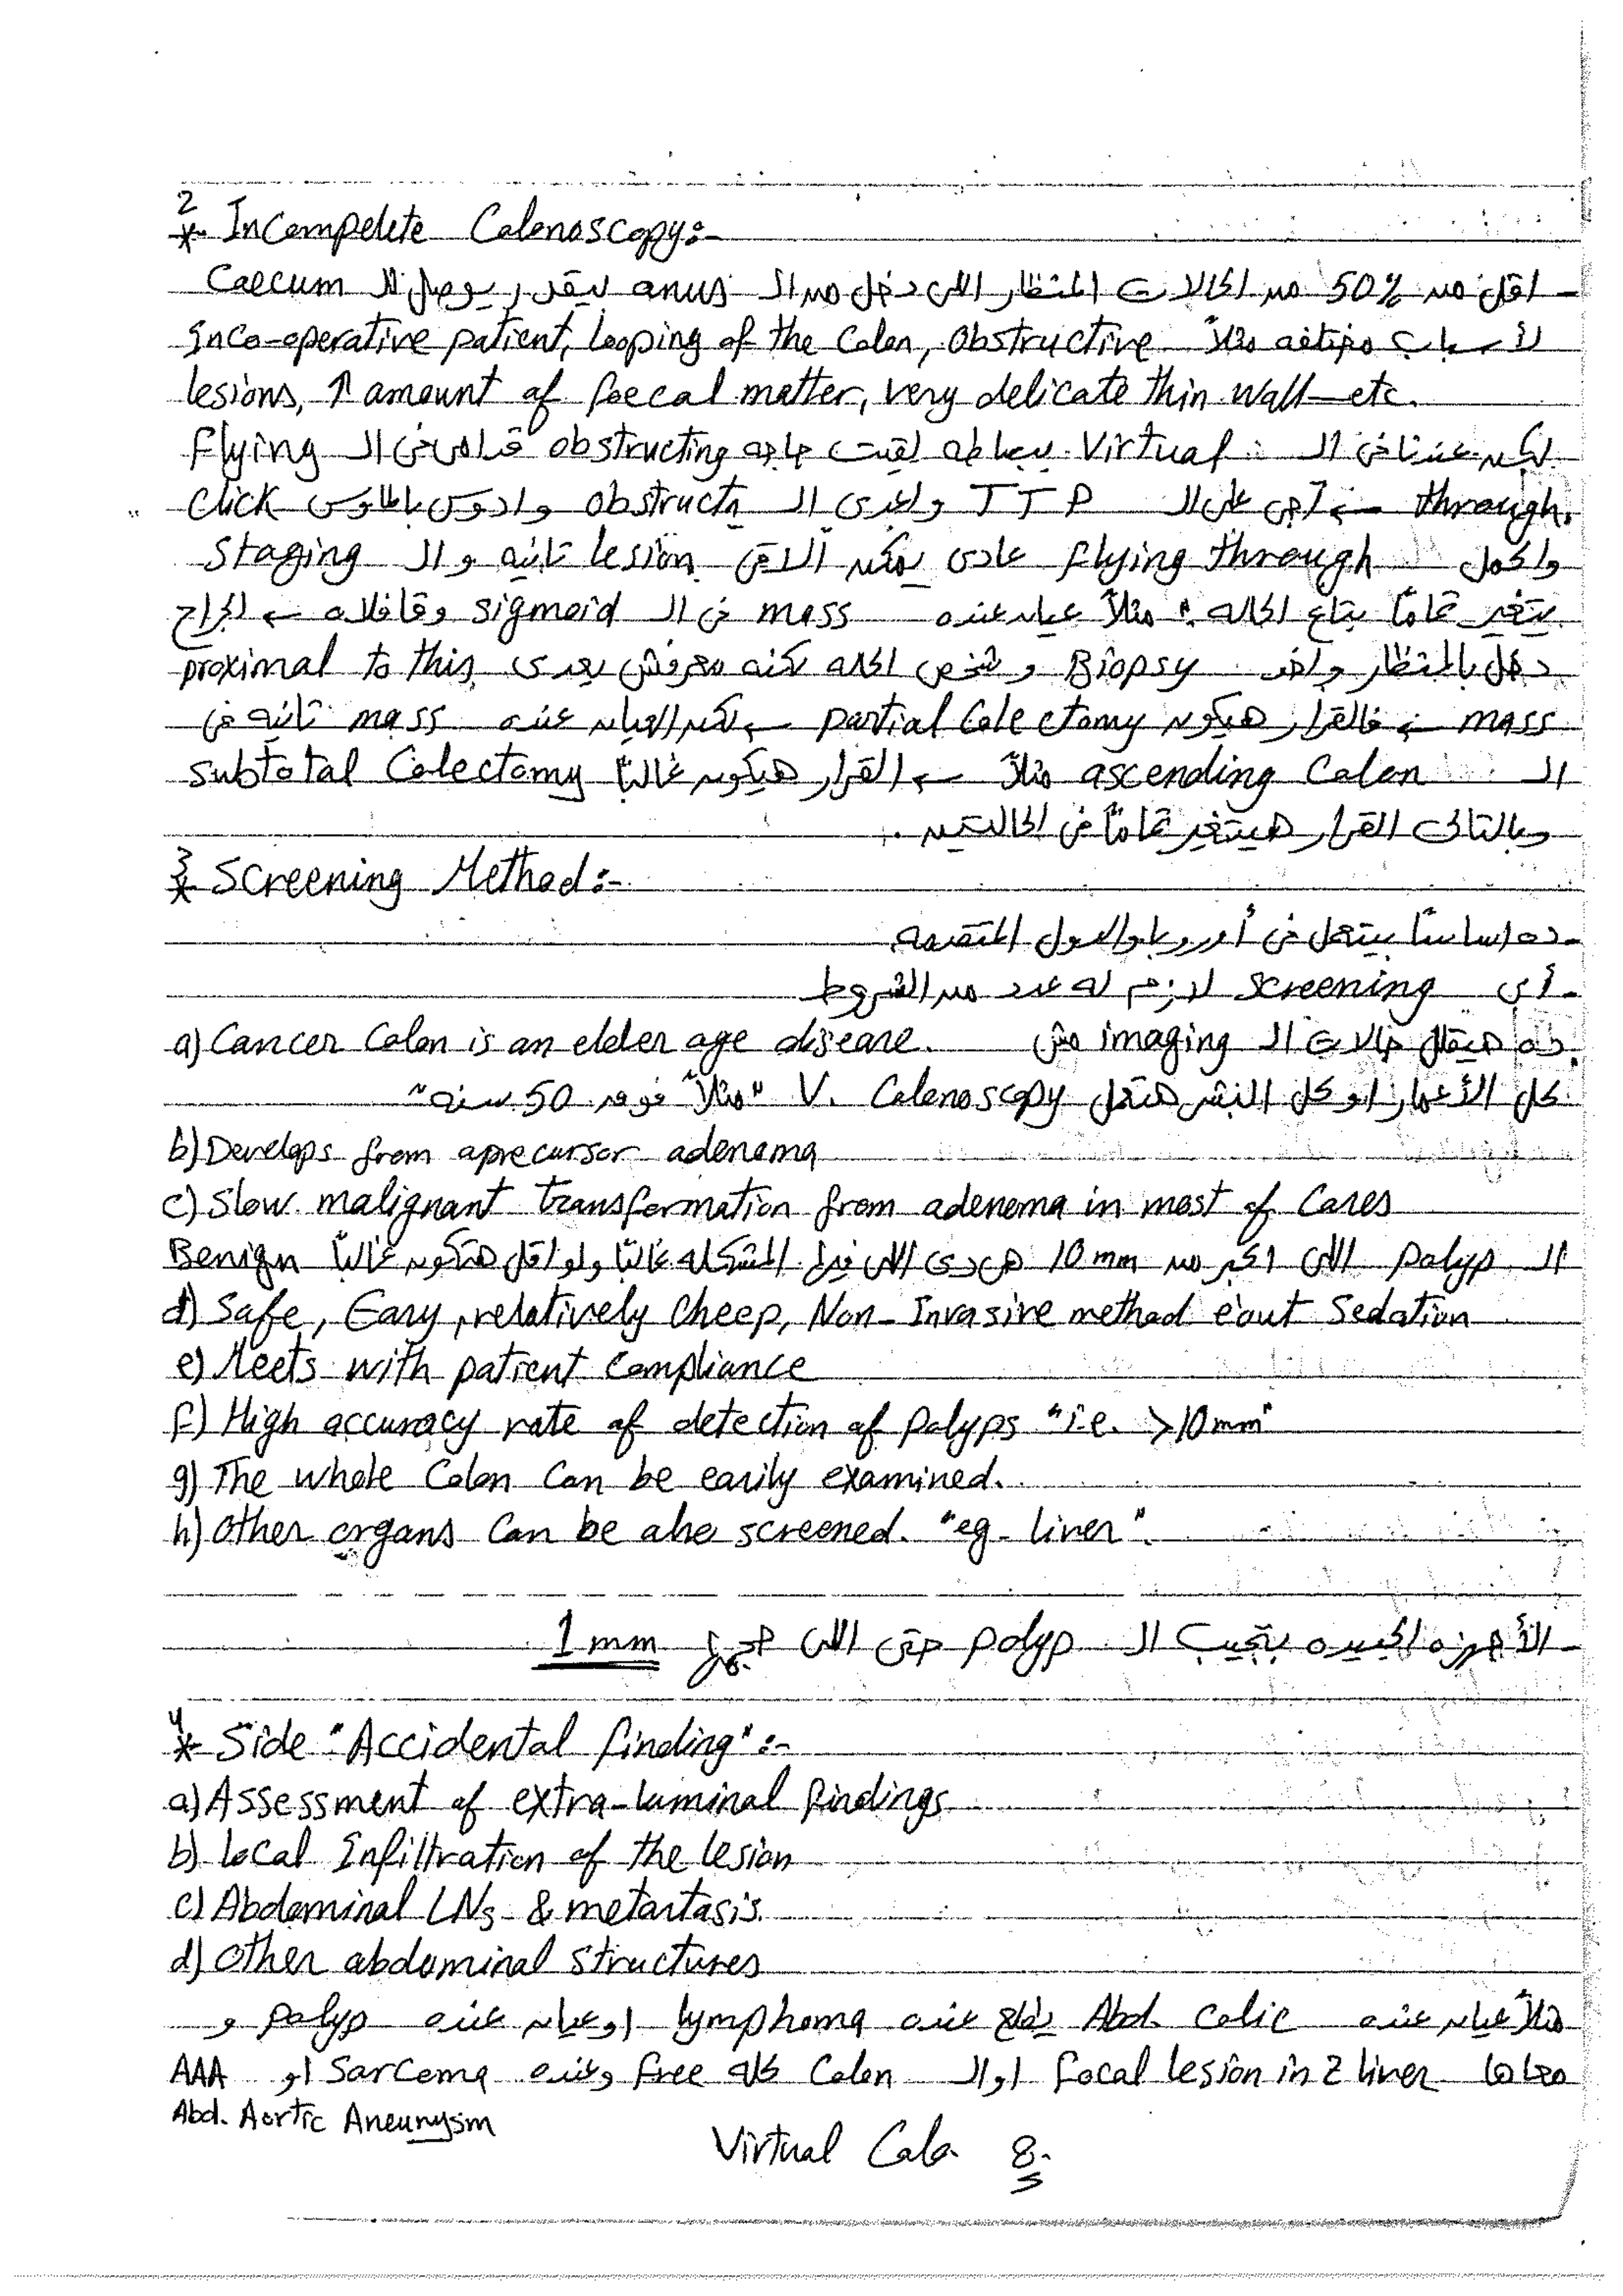 2
* Incompelete Colonoscopy:-
- اقل من 50% من الحالات المنظار اللى دخل من الـ anus ليقدر يوصل لـ Caecum
لأسباب مختلفه مثلاً Inco-operative patient, looping of the Colon, Obstructive
lesions, ↑ amount of foecal matter, very delicate thin wall — etc.
لكن عندنا فى الـ Virtual ببساطه لقيت حاجه obstructing قدامى فى الـ flying
through. ← آجى على الـ TTP واعدى الـ obstructn وادوس بالماوس Click
واكمل flying through عادى ممكن آلاقى lesion تانيه والـ Staging
يتغير تماماً بتاع الحاله: مثلاً عيان عنده mass فى الـ sigmoid وقافلاه ← الجراح
دخل بالمنظار واخد Biopsy وشخص الحاله لكنه معرفش يعدى proximal to this
mass ← فالقرار هيكون partial Colectomy ← لكن العيان عنده mass تانيه فى
الـ ascending Colon مثلاً ← القرار هيكون غالباً subtotal Colectomy
وبالتالى القرار هيتغير تماماً فى الحالتين .
3
* Screening Method:-
- ده اساساً بيتعمل فى أوروبا والدول المتقدمه
- أى screening لازم له عدد من الشروط
a) Cancer Colon is an elder age disease. ده هيقلل حالات الـ imaging مش
كل الأعمار او كل البشر هتعمل V. Colonoscopy "مثلاً فوق 50 سنه"
b) Develops from a precursor adenoma
c) Slow malignant transformation from adenoma in most of Cases
الـ polyp اللى اكبر من 10 mm هى دى اللى فيها المشكله غالباً ولو اقل هتكون غالباً Benign
d) Safe, Easy, relatively Cheep, Non-Invasive method e'out Sedation
e) Meets with patient Compliance
f) High accuracy rate of detection of Polyps "i.e. >10 mm"
g) The whole Colon Can be easily examined.
h) Other organs Can be also screened. "eg- liver".
- الأجهزه الجديده بتجيب الـ polyp حتى اللى حجمها 1 mm
4
* Side "Accidental finding" :-
a) Assessment of extra-luminal findings
b) Local Infiltration of the lesion
c) Abdominal LNs & metastasis.
d) Other abdominal structures
مثلاً عيان عنده Abd. Colic يطلع عنده lymphoma او عيان عنده polyp و
معاها focal lesion in z liver او الـ Colon كله free وعنده Sarcoma او AAA
Abd. Aortic Aneurysm
Virtual Colo 8